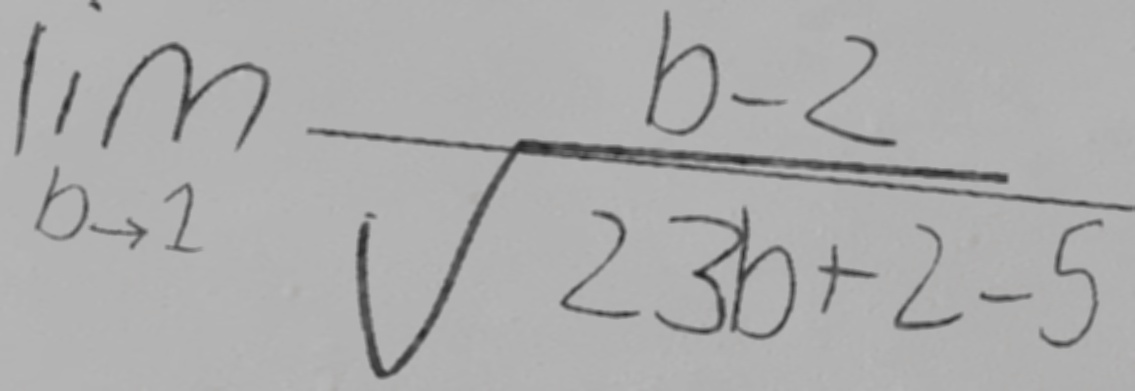 lim b→1 \frac{b-2}{\sqrt{23b+2}-5}